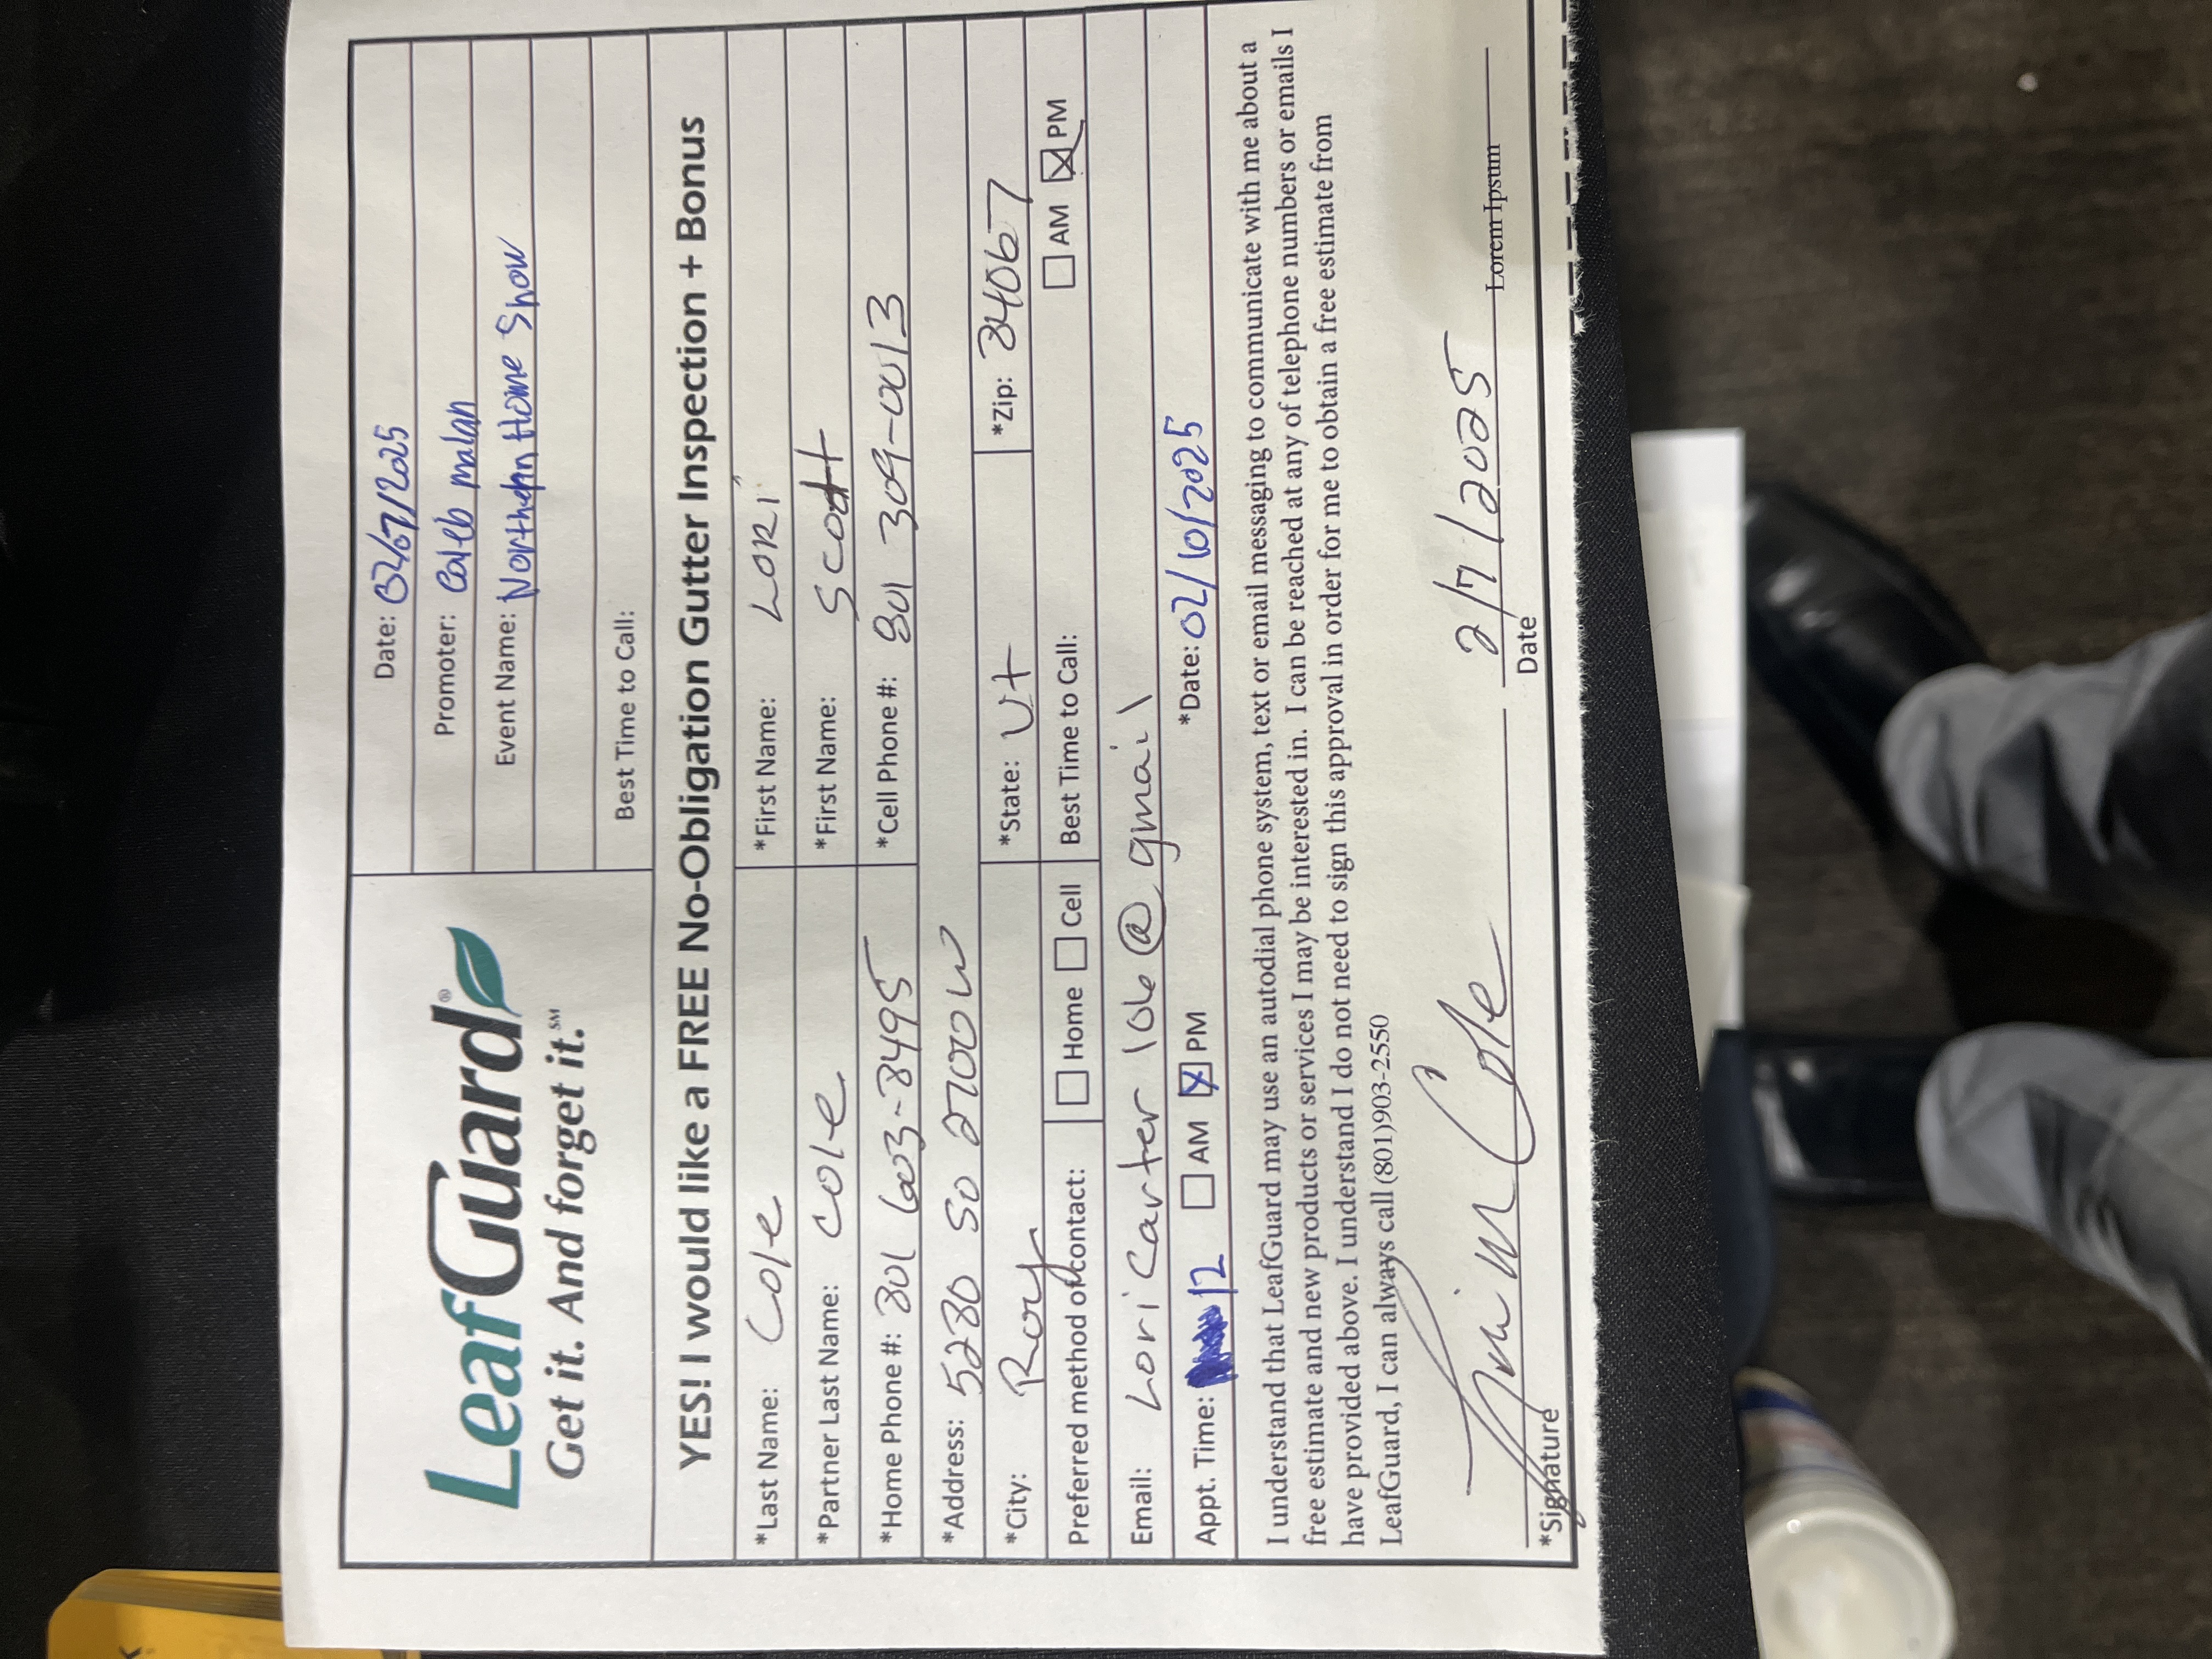 K
S
LeafGuard®
Get it. And forget it.℠
Date: 02/07/2025
Promoter: Caleb malan
Event Name: Northern Home Show
Best Time to Call:
YES! I would like a FREE No-Obligation Gutter Inspection + Bonus
*Last Name: Cole *First Name: LORI
*Partner Last Name: Cole *First Name: Scott
*Home Phone #: 801 603-8495 *Cell Phone #: 801 309-0013
*Address: 5280 So 2700 W
*City: Roy *State: Ut *Zip: 84067
Preferred method of contact: Home Cell Best Time to Call: AM PM
Email: Lori Carter 106@gmail
Appt. Time: 12 AM PM *Date: 02/10/2025
I understand that LeafGuard may use an autodial phone system, text or email messaging to communicate with me about a
free estimate and new products or services I may be interested in. I can be reached at any of telephone numbers or emails I
have provided above. I understand I do not need to sign this approval in order for me to obtain a free estimate from
LeafGuard, I can always call (801)903-2550
Lori M Cole 2/7/2025 Lorem Ipsum
*Signature Date